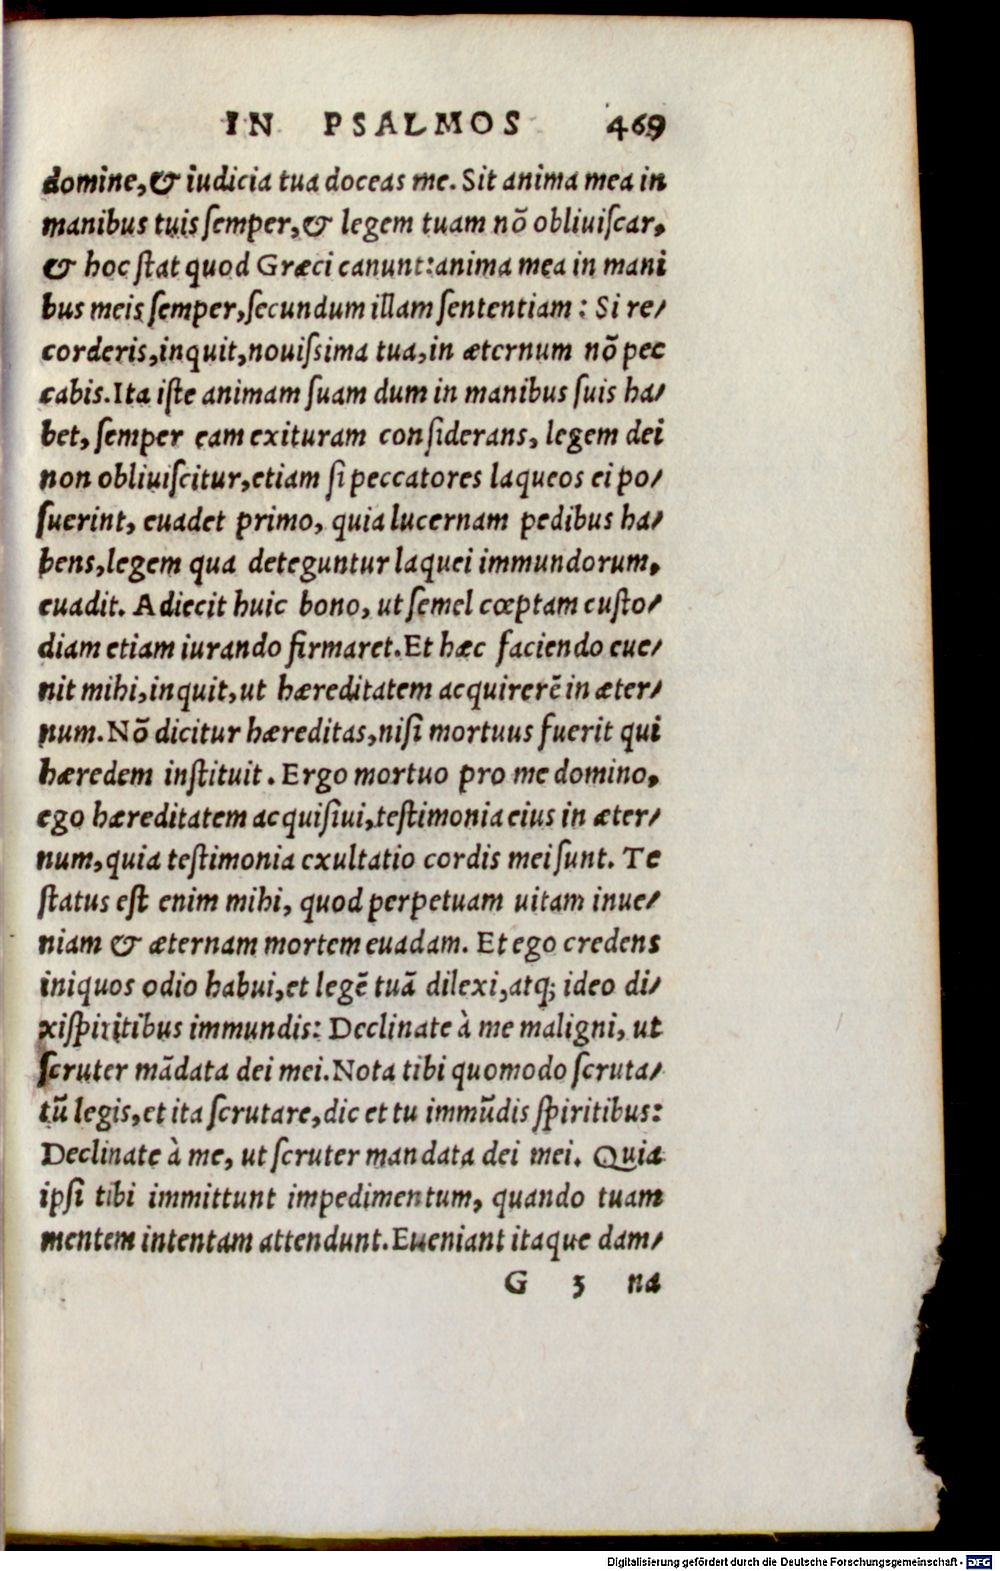 IN PSALMOS 469
domine,& iudicia tua doceas me. Sit anima mea in
manibus tuis ſemper,& legem tuam nõ obliuiſcar,
& hoc ſtat quod Græci canunt:anima mea in mani
bus meis ſemper,ſecundum illam ſententiam : Si re/
corderis,inquit,nouiſsima tua,in æternum nõ pec
cabis.Ita iſte animam ſuam dum in manibus ſuis ha/
bet, ſemper eam exituram conſiderans, legem dei
non obliuiſcitur,etiam ſi peccatores laqueos ei po/
ſuerint, euadet primo, quia lucernam pedibus ha/
bens,legem qua deteguntur laquei immundorum,
euadit. Adiecit huic bono, ut ſemel cœptam cuſto/
diam etiam iurando firmaret.Et hæc faciendo eue/
nit mihi,inquit,ut hæreditatem acquirerẽ in æter/
num.Nõ dicitur hæreditas,niſi mortuus fuerit qui
hæredem inſtituit. Ergo mortuo pro me domino,
ego hæreditatem acquiſiui,teſtimonia eius in æter/
num,quia teſtimonia exultatio cordis mei ſunt. Te
ſtatus eſt enim mihi, quod perpetuam uitam inue/
niam & æternam mortem euadam. Et ego credens
iniquos odio habui,et legẽ tuã dilexi,atq; ideo di/
xi ſpiritibus immundis: Declinate à me maligni, ut
ſcruter mãdata dei mei.Nota tibi quomodo ſcruta/
tũ legis,et ita ſcrutare,dic et tu immũdis ſpiritibus:
Declinate à me, ut ſcruter mandata dei mei. Quia
ipſi tibi immittunt impedimentum, quando tuam
mentem intentam attendunt.Eueniant itaque dam/
G 3 na
Digitalisierung gefördert durch die Deutsche Forschungsgemeinschaft - DFG